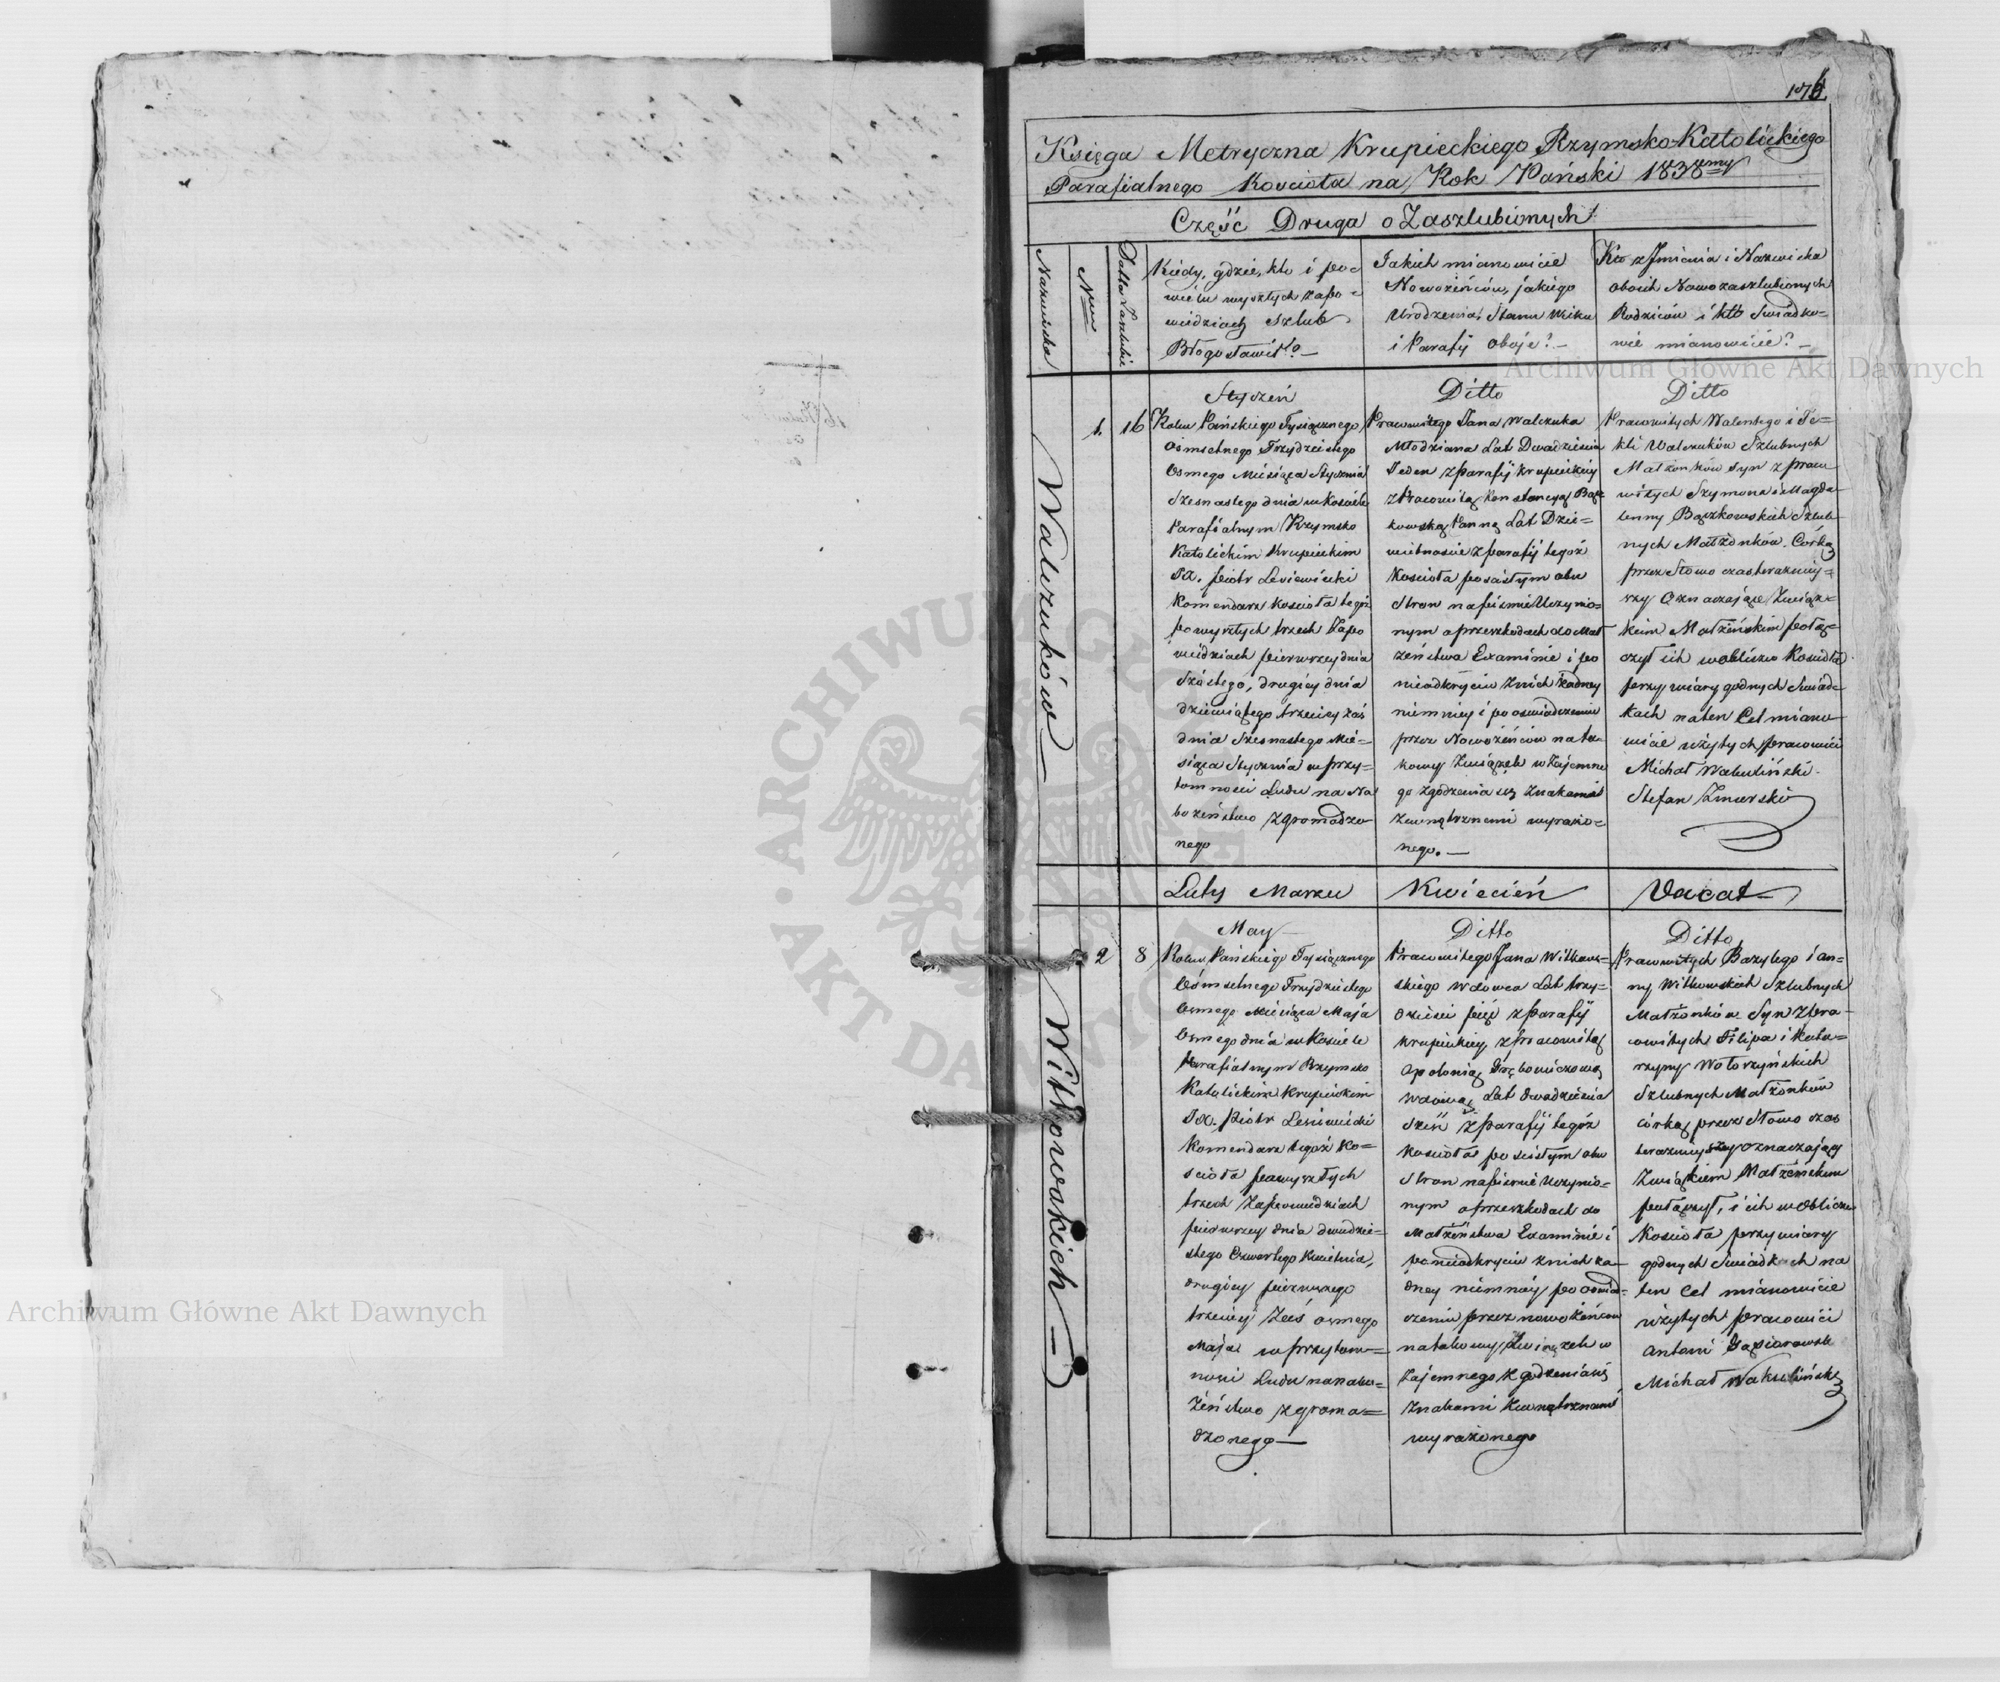 176.
Księga Metryczna Krupieckiego Rzymsko-Katolickiego
Parafialnego Kościoła na Rok Pański 1838my
Część Druga o Zaszlubionych
Nazwiska
Nrm
Datta
Kiedy, gdzie, kto i po
wielu wyszłych zapo-
wiedziach Szlub
Błogosławił?—
Jakich mianowicie
Nowożeńców, jakiego
Urodzenia, Stanu Wieku
i Parafij oboje?—
Kto z Jmienia i Nazwiska
oboich Nowozaszlubionych
Rodziców i kto Swiadko-
wie mianowicie?—
Walczuków
1.
16
Styczeń
Roku Pańskiego Tysiącznego
Osmsetnego Trzydziestego
Osmego Miesiąca Stycznia
Szesnastego dnia w Kościele
Parafialnym Rzymsko
Katolickim Krupieckim
JX. Piotr Lesiewicki
Komendarz Kościoła tegoż
po wyszłych trzech Zapo
wiedziach pierwszey dnia
Szóstego, drugiey dnia
dziewiątego trzeciey zaś
dnia Szesnastego Mie-
siąca Stycznia w przy-
tomności Ludu na Na
bożeństwo zgromadzo
nego
Ditto
Pracowitego Jana Walczuka
Młodziana Lat Dwadzieścia
Jeden z parafij Krupieckiey
z Pracowitą Konstancyą Bącz
kowską Panną Lat Dzie-
wietnaście z parafij tegoż
Kościoła po ścisłym obu
Stron na piśmie Uczynio-
nym o przeszkodach do Mał
żeństwa Examinie i po
nieodkryciu z nich żadney
niemniey i po oswiadczeniu
przez Nowożeńców na ta-
kowy Związek w Zajemne
go zgodzenia się Znakami
Zewnętrznemi wyrażo-
nego.—
Ditto
Pracowitych Walentego i Te-
kli Walczuków Szlubnych
Małżonków Syn z praco
witych Szymona i Magda
lenny Bączkowskich Szlub
nych Małżonków Córką
przez Słowo czas teraźniey-
szy Oznaczające Związ-
kiem Małżeńskim połą-
czył ich w obliczu Kościoła
przy wiary godnych Swiad-
kach na ten Cel miano
wicie użytych pracowici
Michał Wakuliński
Stefan Zmurski
Luty Marzec
Kwiecień
Vacat
Witkowskich
2
8
May
Roku Pańskiego Tysiącznego
Osmsetnego Trzydziestego
Osmego Miesiąca Maja
Osmego dnia w Kościele
Parafialnym Rzymsko
Katolickim Krupieckim
JX. Piotr Lesiewicki
Komendarz tegoż Ko-
ścioła po wyszłych
trzech Zapowiedziach
pierwszey dnia dwudzie-
stego Czwartego Kwietnia,
drugiey pierwszego
trzeciey Zaś osmego
Maja w przytom-
ności Ludu na nabo-
żeństwo zgroma-
dzonego—
Ditto
Pracowitego Jana Witkow-
skiego wdowca Lat trzy-
dzieści pięć z parafij
krupieckiey z pracowitą
Apolonią
wdową Lat dwadzieścia
sześć z parafij tegoż
Kościoła po ścisłym obu
Stron na piśmie Uczynio-
nym o przeszkodach do
Małżeństwa Examinie i
po nieodkryciu z nich ża-
dney niemniey po oswiad-
czeniu przez nowożeńców
na takowy Związek w
Zajemnego zgodzenia się
Znakami Zewnętrznemi
wyrażonego
Ditto
Pracowitych Bazylego i An-
ny Witkowskich Szlubnych
Małżonków Syn z Pra-
cowitych Filipa i Kata-
rzyny Wołoszyńskich
Szlubnych Małżonków
córką przez Słowo czas
teraźnieyszy oznaczający
Związkiem Małżeńskim
połączył, i ich w obliczu
Kościoła przy wiary
godnych Swiadkach na
ten Cel mianowicie
użytych pracowici
Antoni Gąsiorowski
Michał Wakuliński
Archiwum Główne Akt Dawnych
Archiwum Główne Akt Dawnych
ARCHIWUM GŁÓWNE AKT DAWNYCH